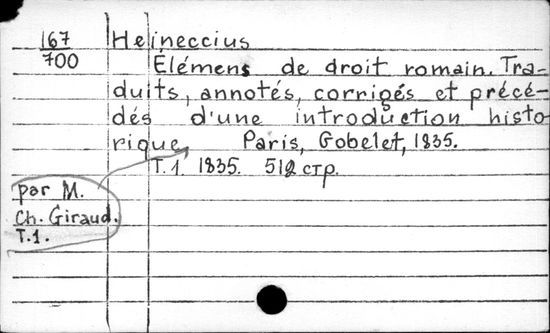 167 Heineccius
700 Élémens de droit romain. Tra-
duits, annotés, corrigés et précé-
dés d'une introduction histo
rique Paris, Gobelet, 1835.
T.1. 1835. 512 стр.
par M.
Ch. Giraud.
T.1.